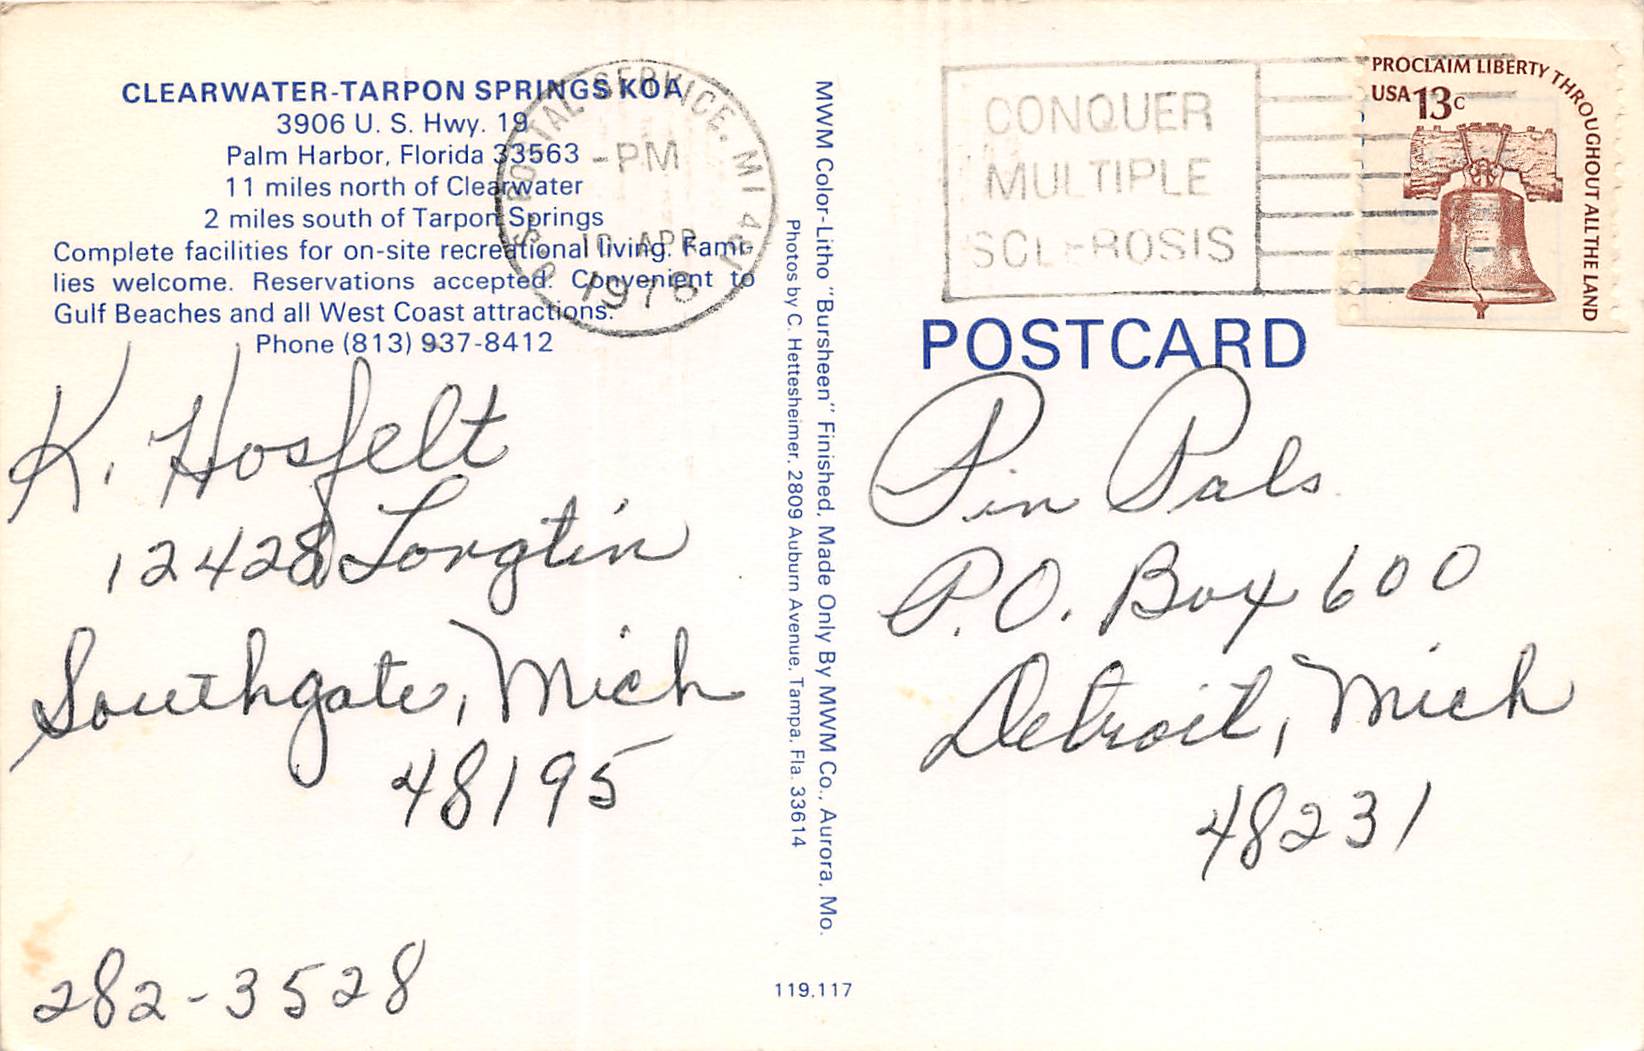 CLEARWATER-TARPON SPRINGS KOA
3906 U. S. Hwy. 19
Palm Harbor, Florida 33563
11 miles north of Clearwater
2 miles south of Tarpon Springs
Complete facilities for on-site recreational living. Fami-
lies welcome. Reservations accepted. Convenient to
Gulf Beaches and all West Coast attractions.
Phone (813) 937-8412
K. Hosfelt
12428 Longtin
Southgate, Mich
48195
282-3528
MWM Color-Litho "Bursheen" Finished, Made Only By MWM Co., Aurora, Mo.
Photos by C. Hettesheimer, 2809 Auburn Avenue, Tampa, Fla. 33614
119,117
U.S. POSTAL SERVICE, MI
-PM
APR
1976
CONQUER
MULTIPLE
SCLEROSIS
PROCLAIM LIBERTY THROUGHOUT ALL THE LAND
USA 13c
POSTCARD
Pin Pals
P.O. Box 600
Detroit, Mich
48231